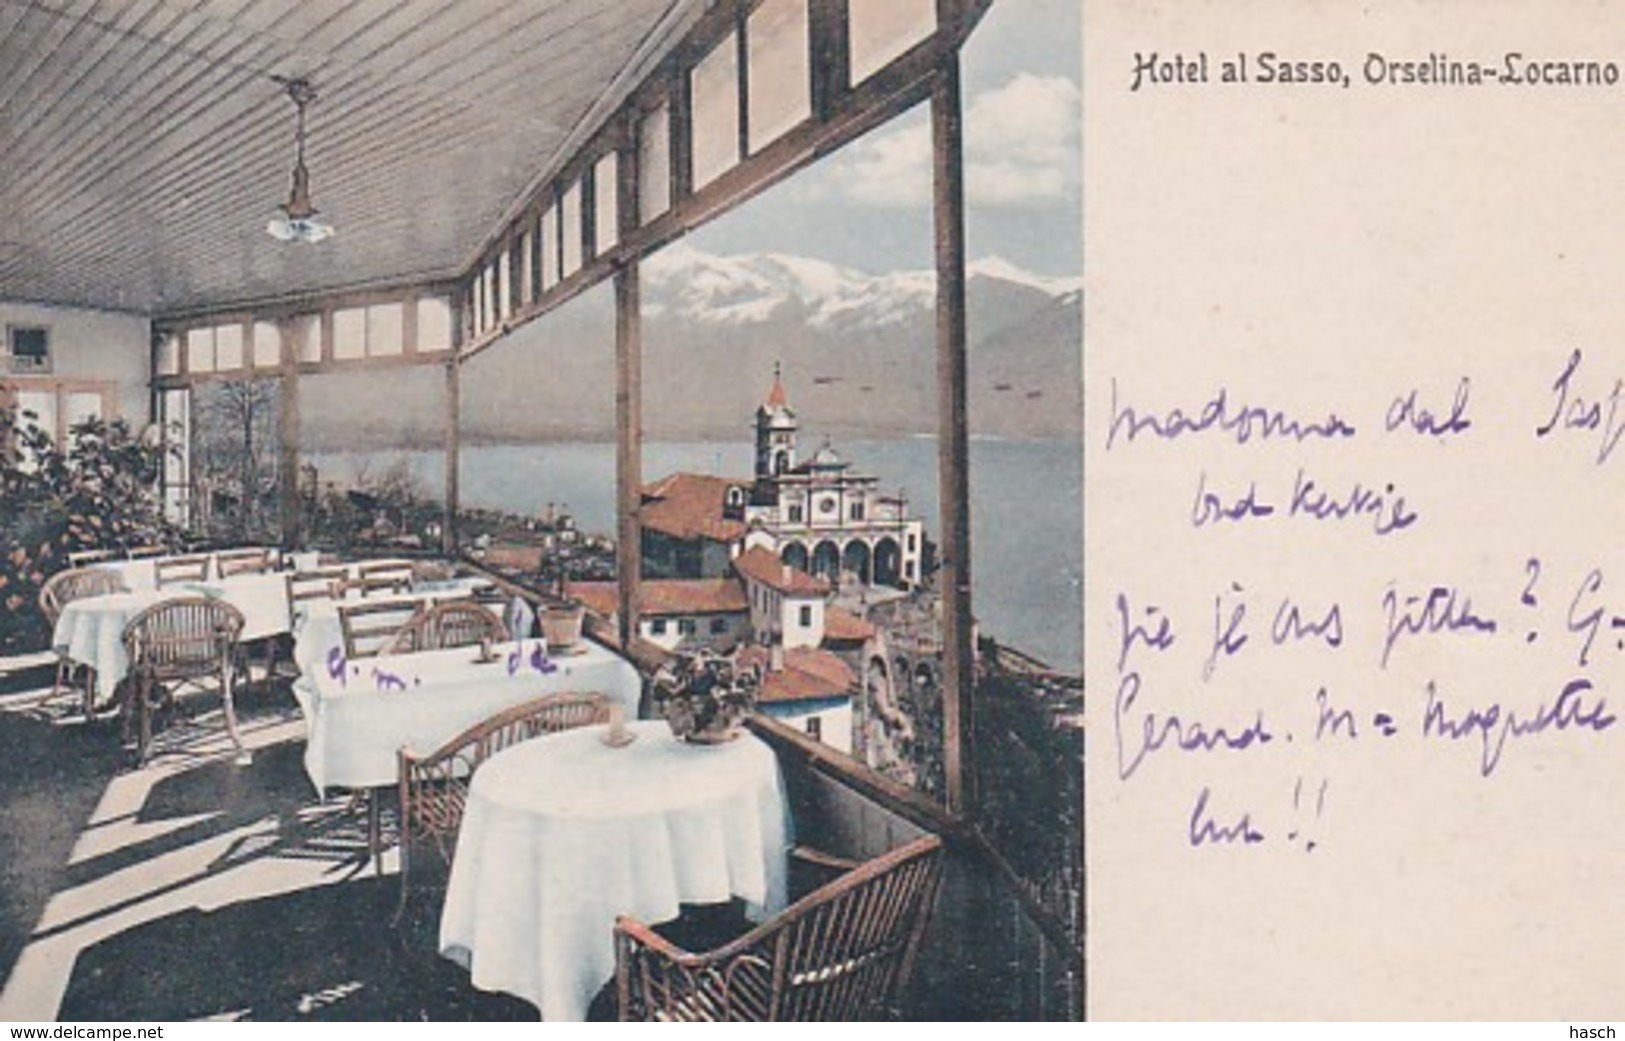 Hotel al Sasso, Orselina-Locarno
Madonna dal Sass
oud Kerkje
Zie je ons zitten? G=
Gerard. M= Maguette
G. M.
www.delcampe.net
hasch